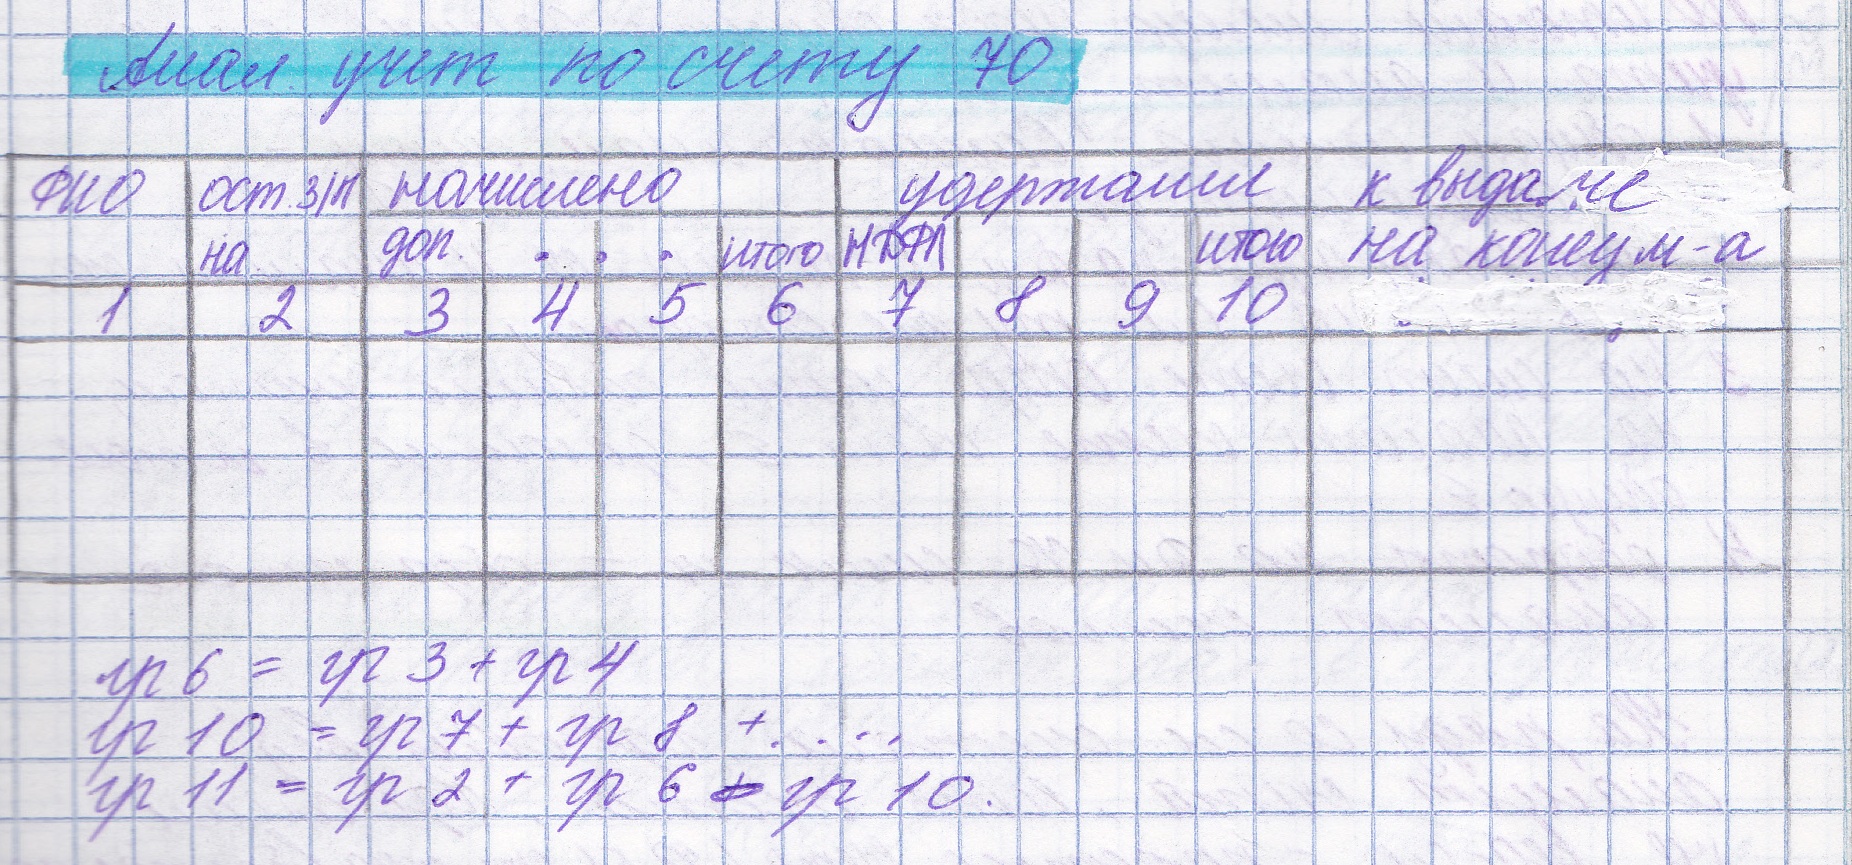 Анал. учет по счету 70
ФИО ост. З/П начислено удержание к выдаче
на доп. . . . итого НДФЛ итого на конец м-а
1 2 3 4 5 6 7 8 9 10
гр 6 = гр 3 + гр 4
гр 10 = гр 7 + гр 8 + . . . .
гр 11 = гр 2 + гр 6 - гр 10.